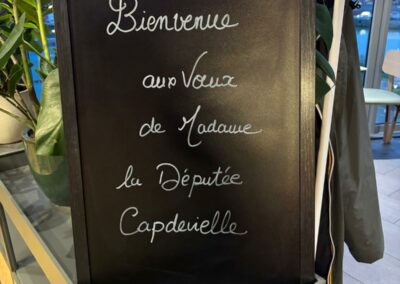 Bienvenue
aux Vœux
de Madame
la Députée
Capdevielle